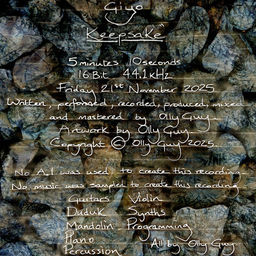 Giyo
Keepsake
5 minutes 10 seconds
16 Bit 44.1 kHz
Friday 21st November 2025
Written, performed, recorded, produced, mixed
and mastered by Olly Guy.
Artwork by Olly Guy.
Copyright © Olly Guy 2025.
No A.I was used to create this recording.
No music was sampled to create this recording.
Guitars Violin
Duduk Synths
Mandolin Programming
Piano
Percussion All by Olly Guy